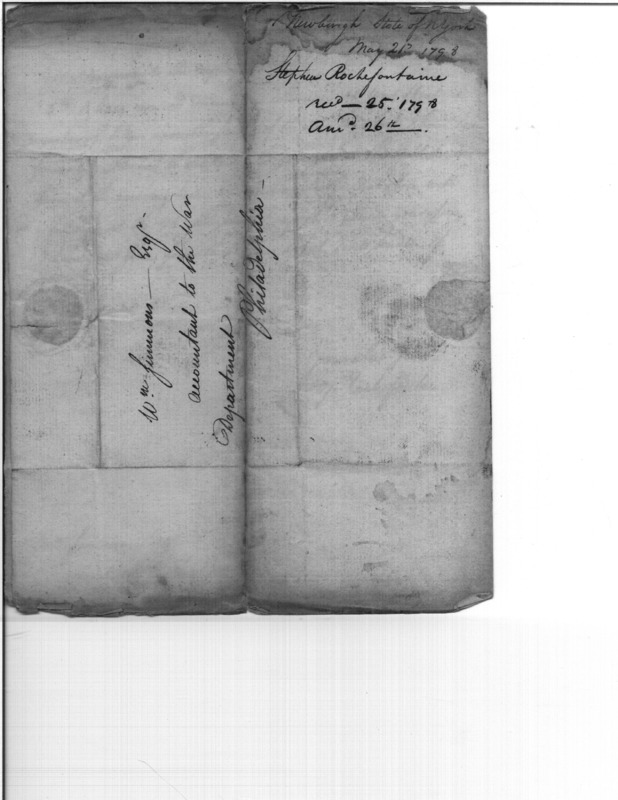 Newburgh State of N York
May 21st 1798
Stephen Rochefontaine
recd — 25. 1798
Ansd. 26th.
Wm Simmons — Esqr.
accountant to the War
Department
Philadelphia —